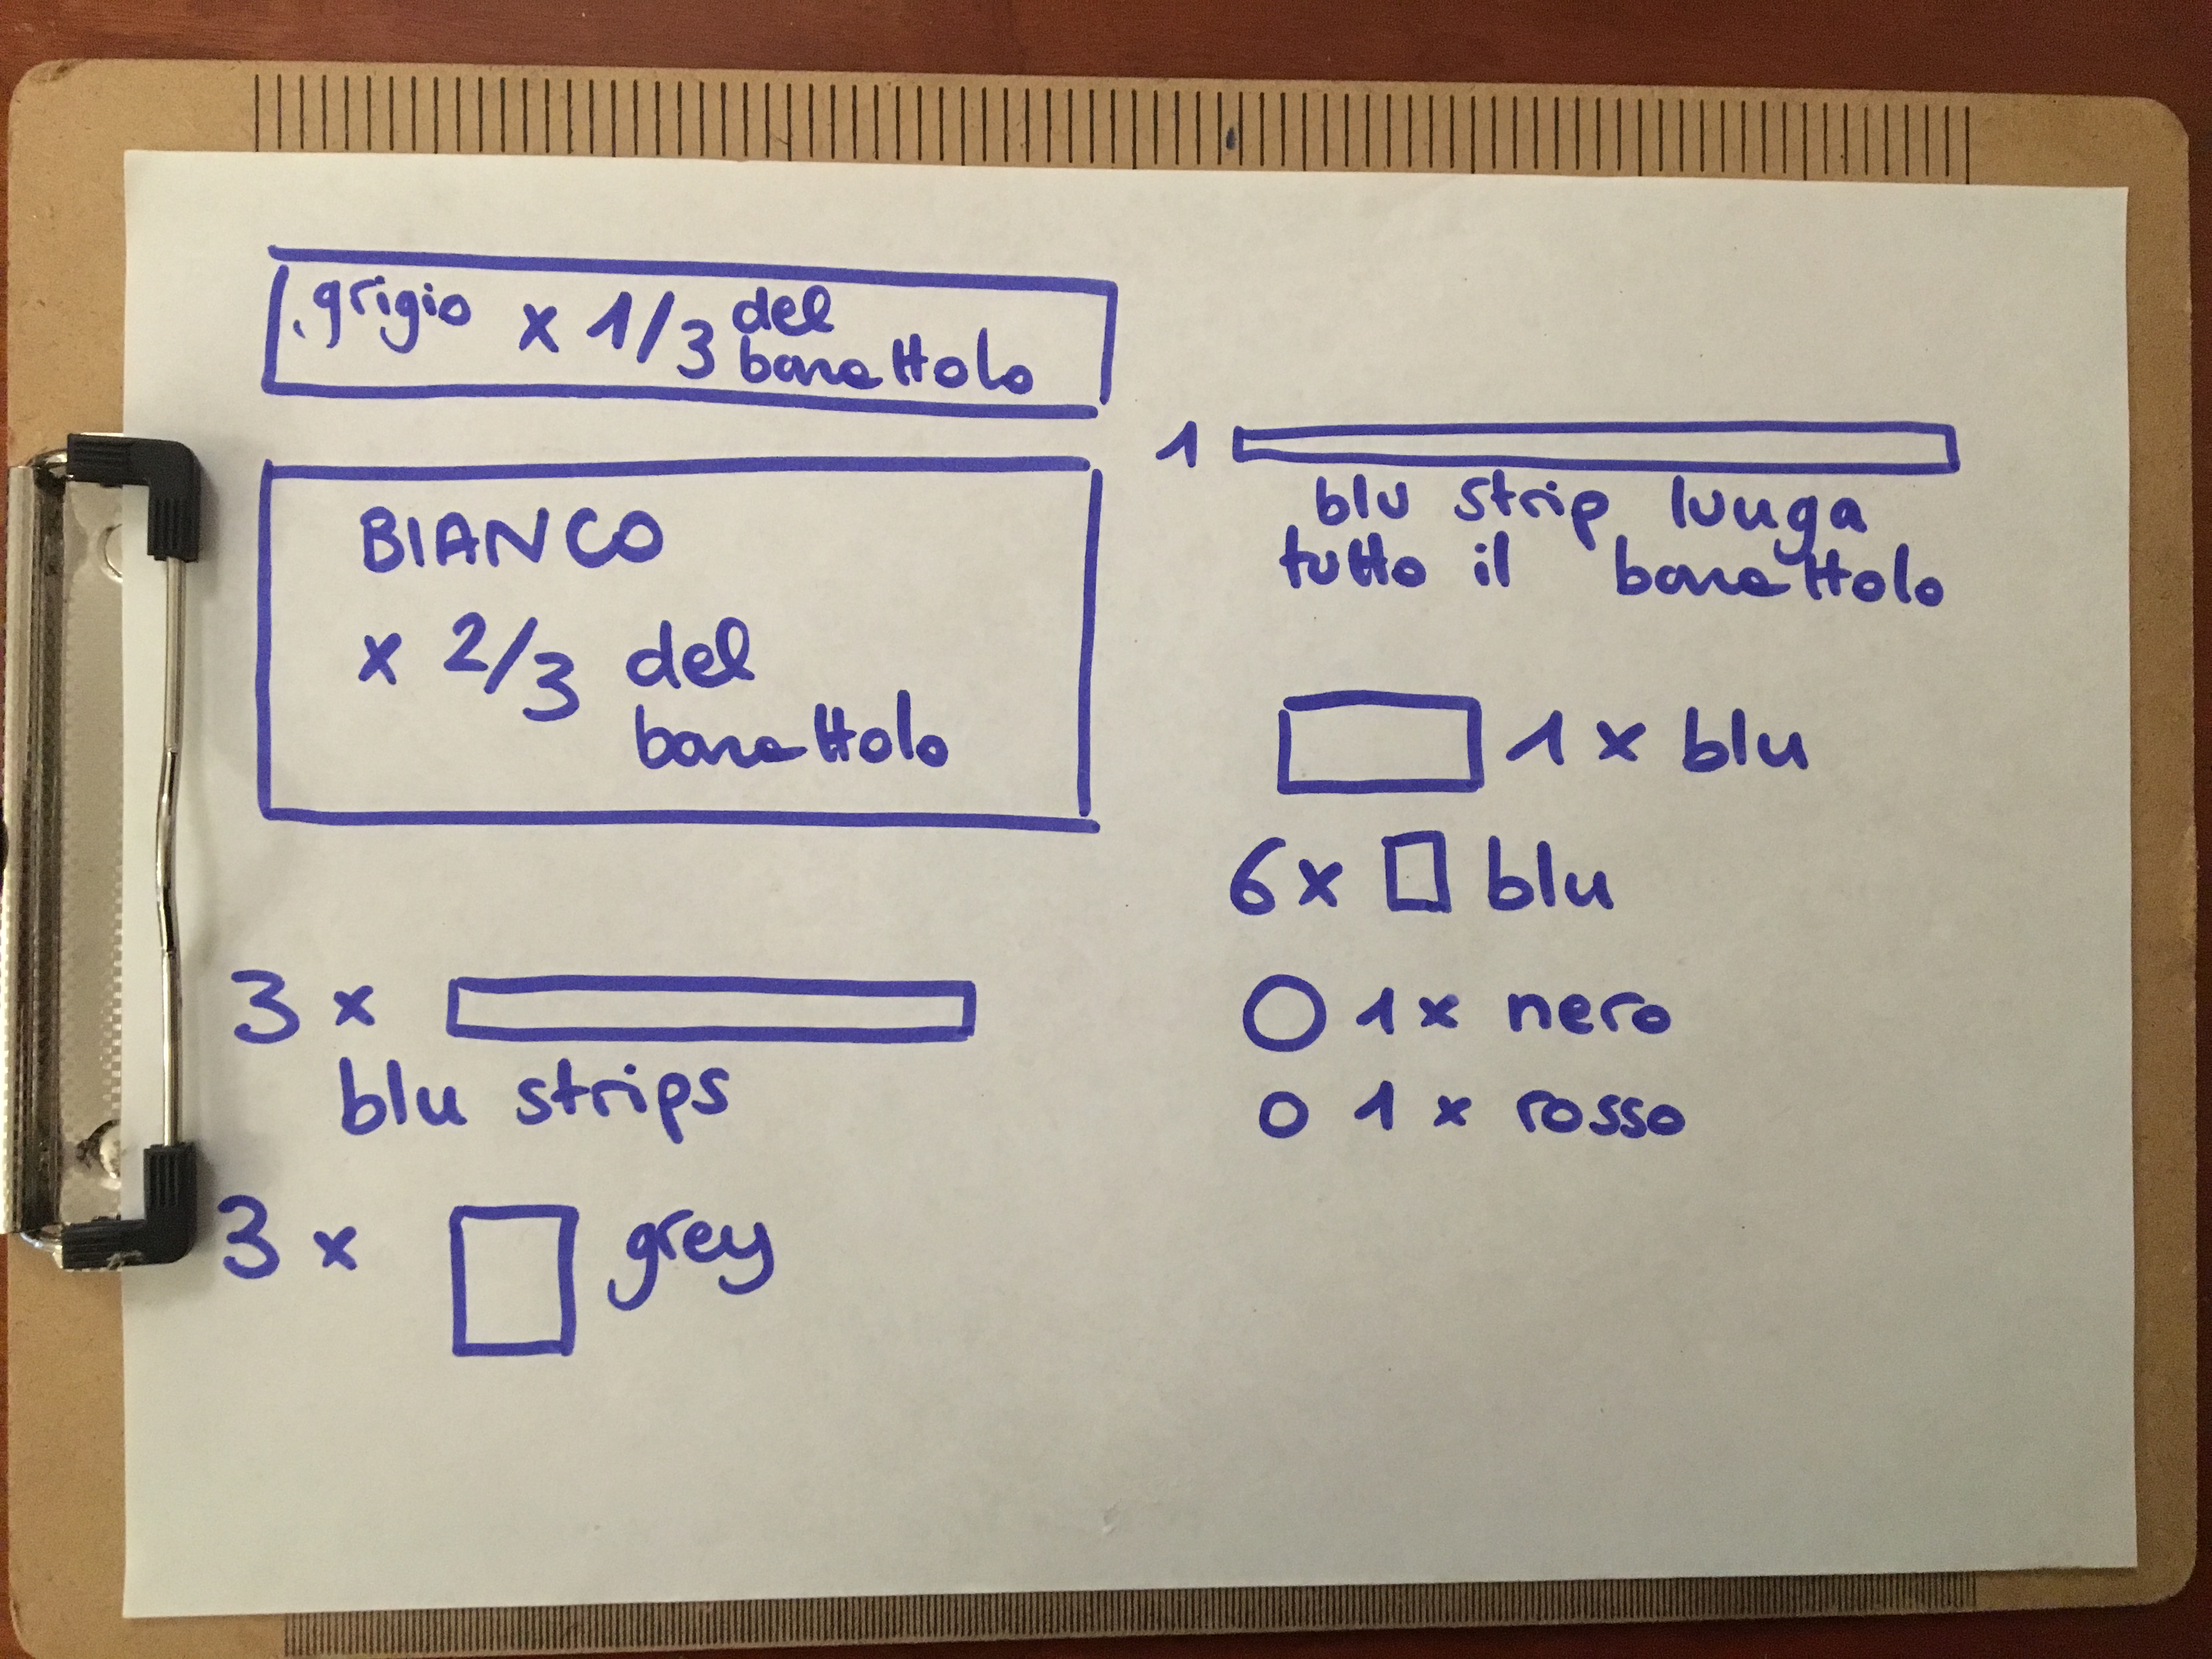 grigio x 1/3 del
barattolo
BIANCO
x 2/3 del
barattolo
3 x
blu strips
3 x grey
1
blu strip lunga
tutto il barattolo
1 x blu
6x blu
1 x nero
1 x rosso